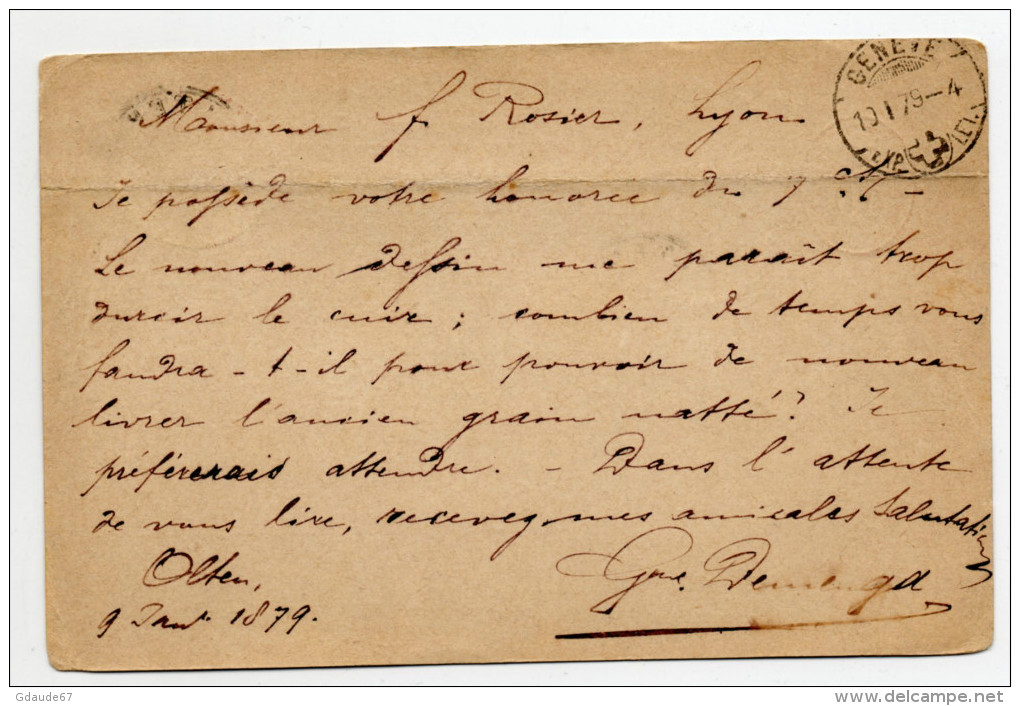 GENEVE
10 I 79–4
EXP. LET.
Monsieur f Rosier, Lyon
Je possède votre honorée du 7 Ct –
Le nouveau dessin me paraît trop
durcir le cuir ; combien de temps vous
faudra-t-il pour pouvoir de nouveau
livrer l'ancien grain natté ? Je
préférerais attendre. – Dans l'attente
de vous lire, recevez mes amicales Salutations
Olten,
9 Janv. 1879.
Gdaude67
www.delcampe.net